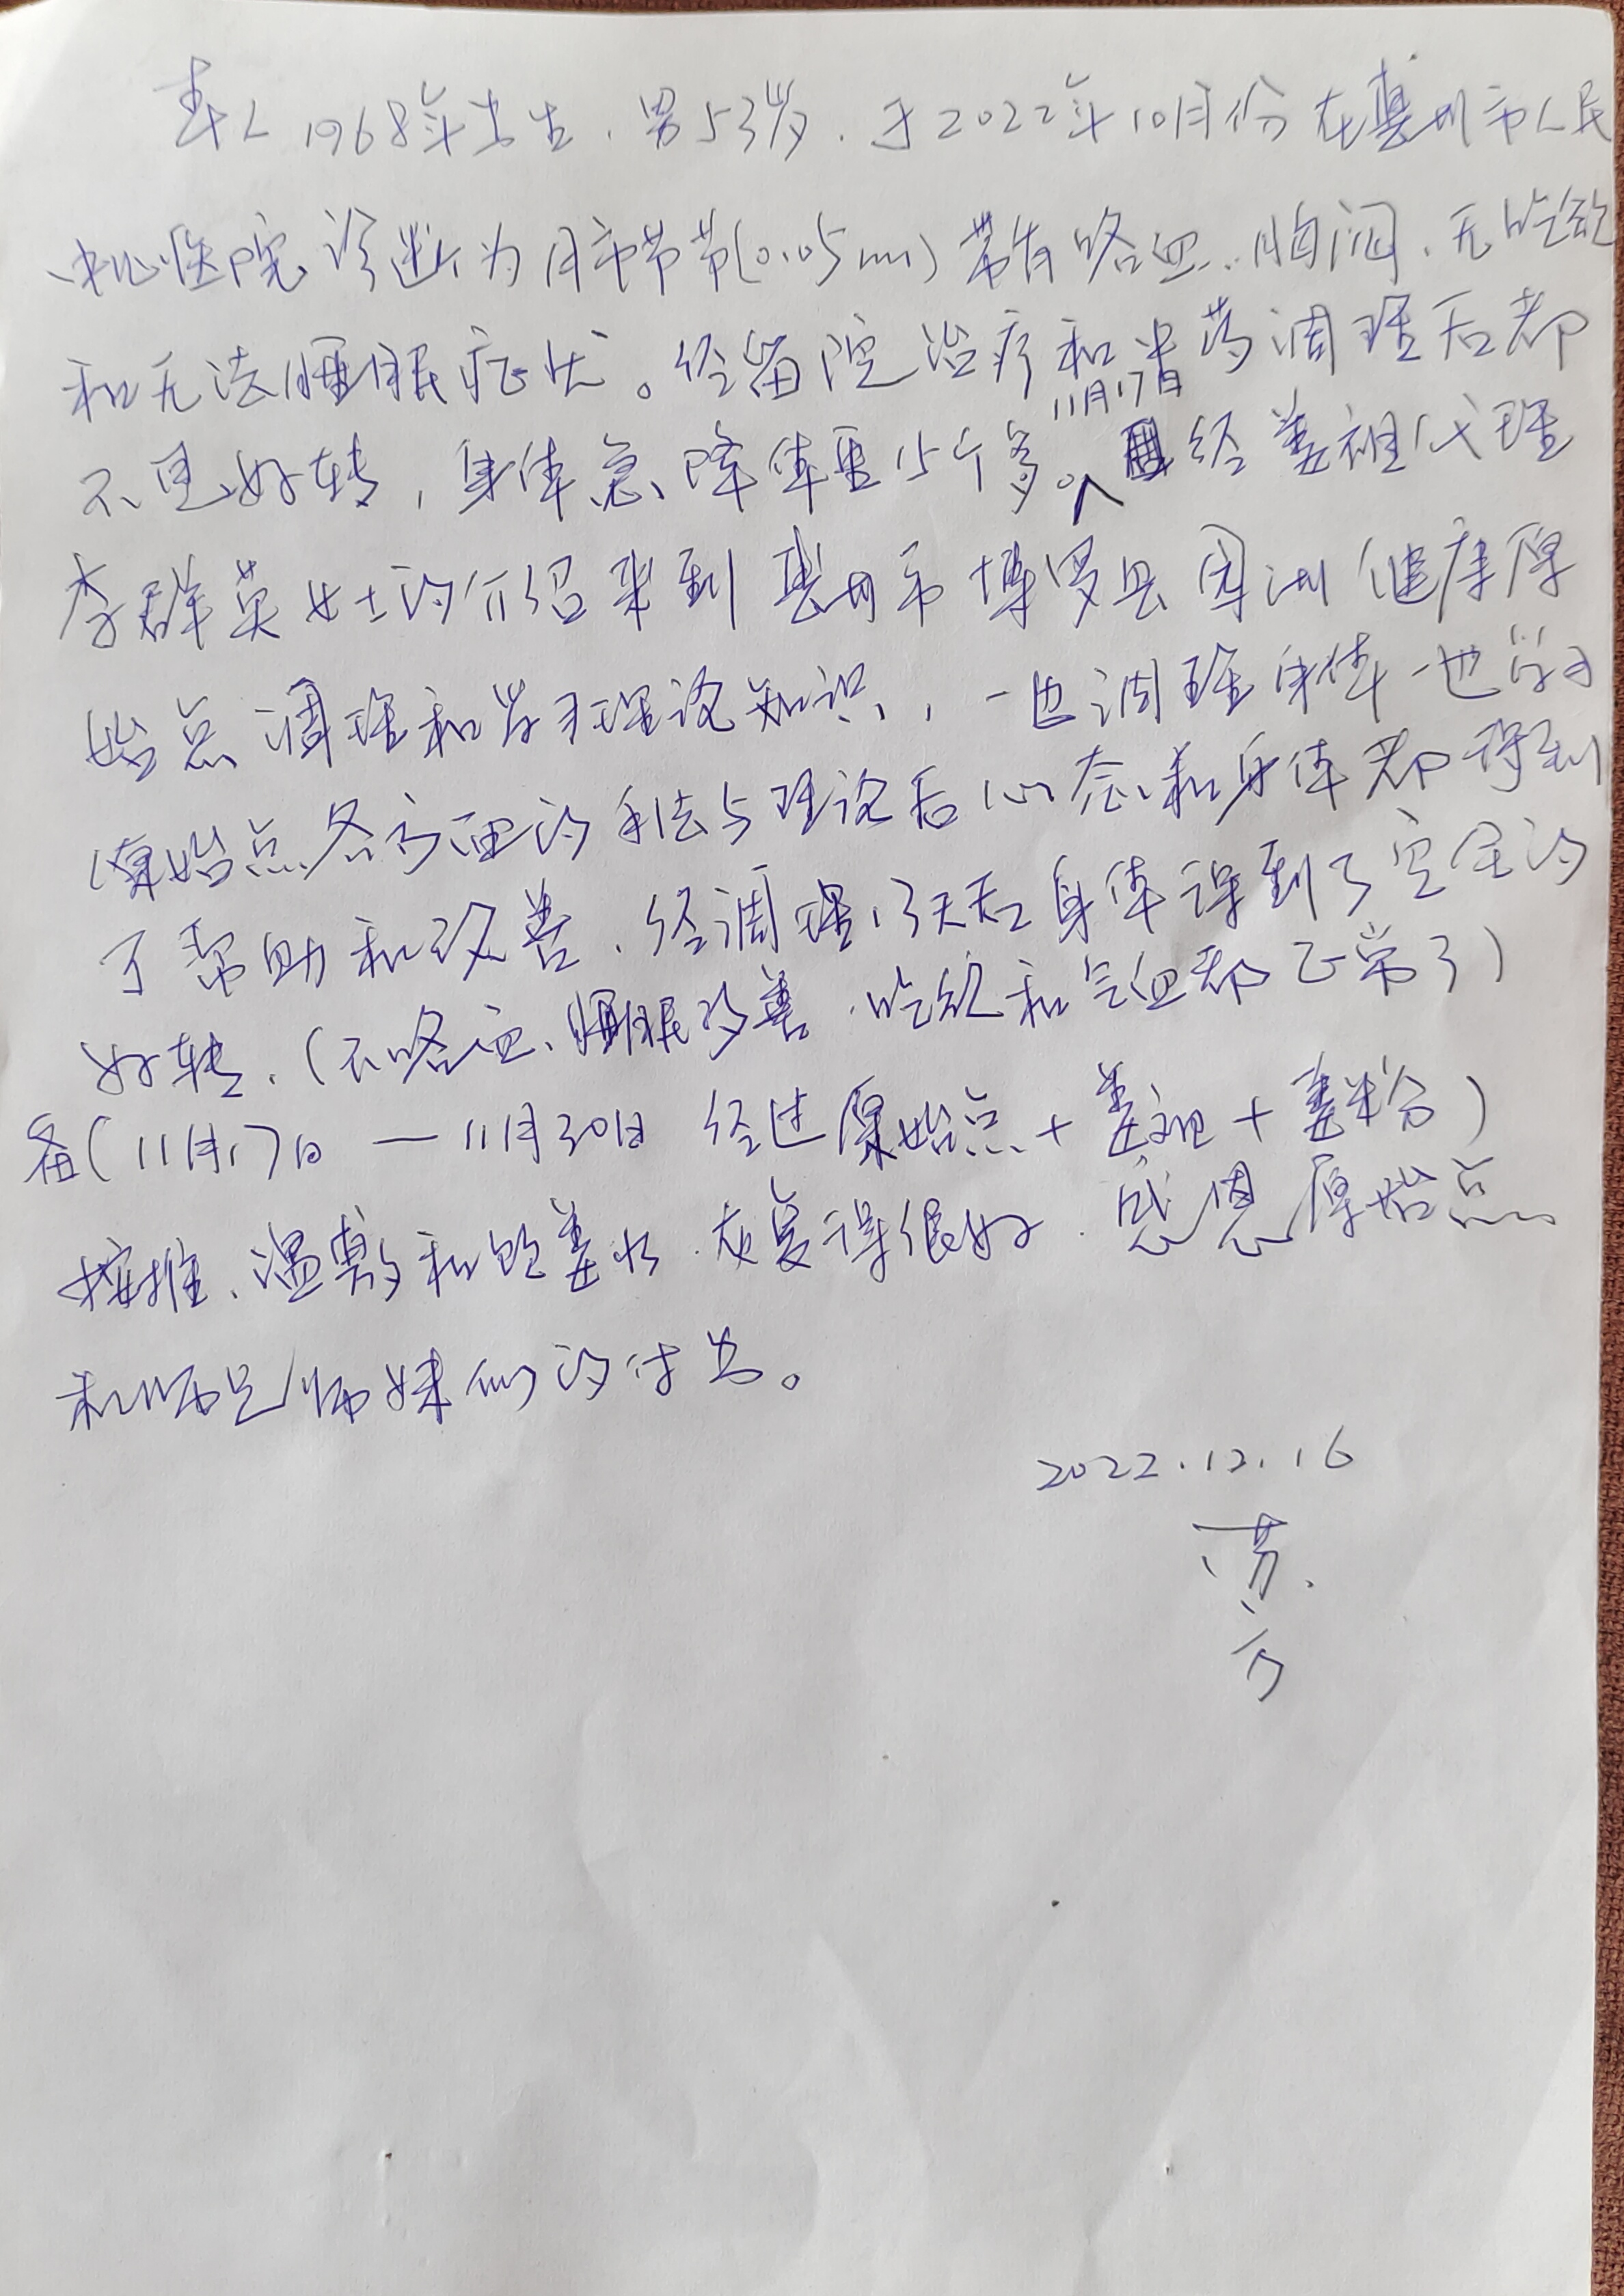 本人1968年出生.男53岁.于2022年10月份在惠州市人民
中心医院诊断为肺节节(0.05mm)带有咯血.胸闷.无吃欲
和无法睡眠症状。经留院治疗和中药调理后都
不见好转,身体急降体重15个多。11月17日经姜祖代理
李群英女士的介绍来到惠州市博罗县园洲健康原
始点调理和学习理论知识,一边调理身体一边学习
原始点各方面的手法与理论后心态和身体都得到
了帮助和改善.经调理13天后身体得到了完全的
好转.(不咯血、睡眠改善.吃欲和气血都正常了)
备(11月17日—11月30日 经过原始点+姜祖+姜粉)
按推、温敷和饮姜水.恢复得很好.感恩原始点
和师兄师妹们的付出。
2022.12.16